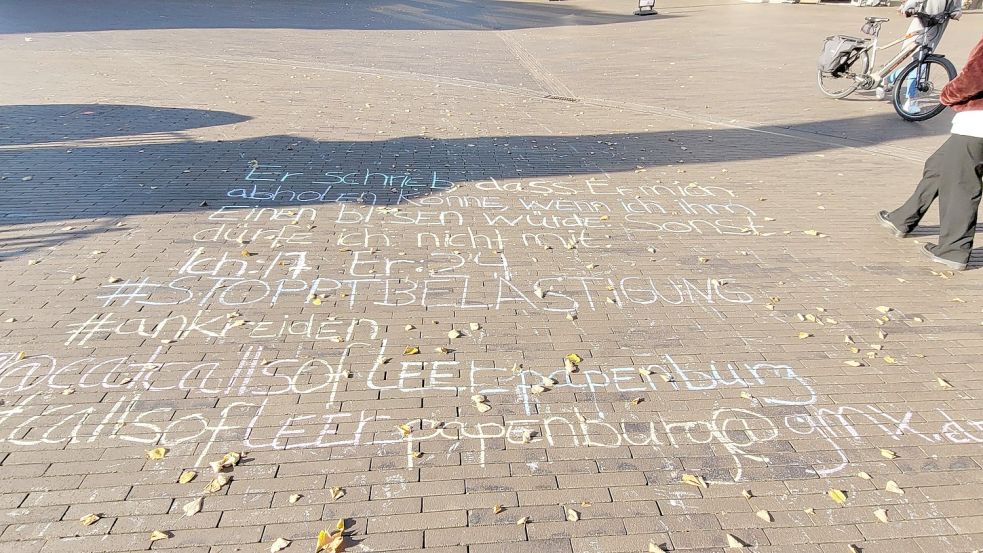 Er schrieb, dass Er mich
abholen könne, wenn ich ihm
Einen blasen würde. Sonst
dürfe ich nicht mit.
Ich: 17 Er: 24
#STOPPTBELÄSTIGUNG
#ankreiden
@catcallsofLEERpapenburg
catcallsofLEERpapenburg@gmx.de